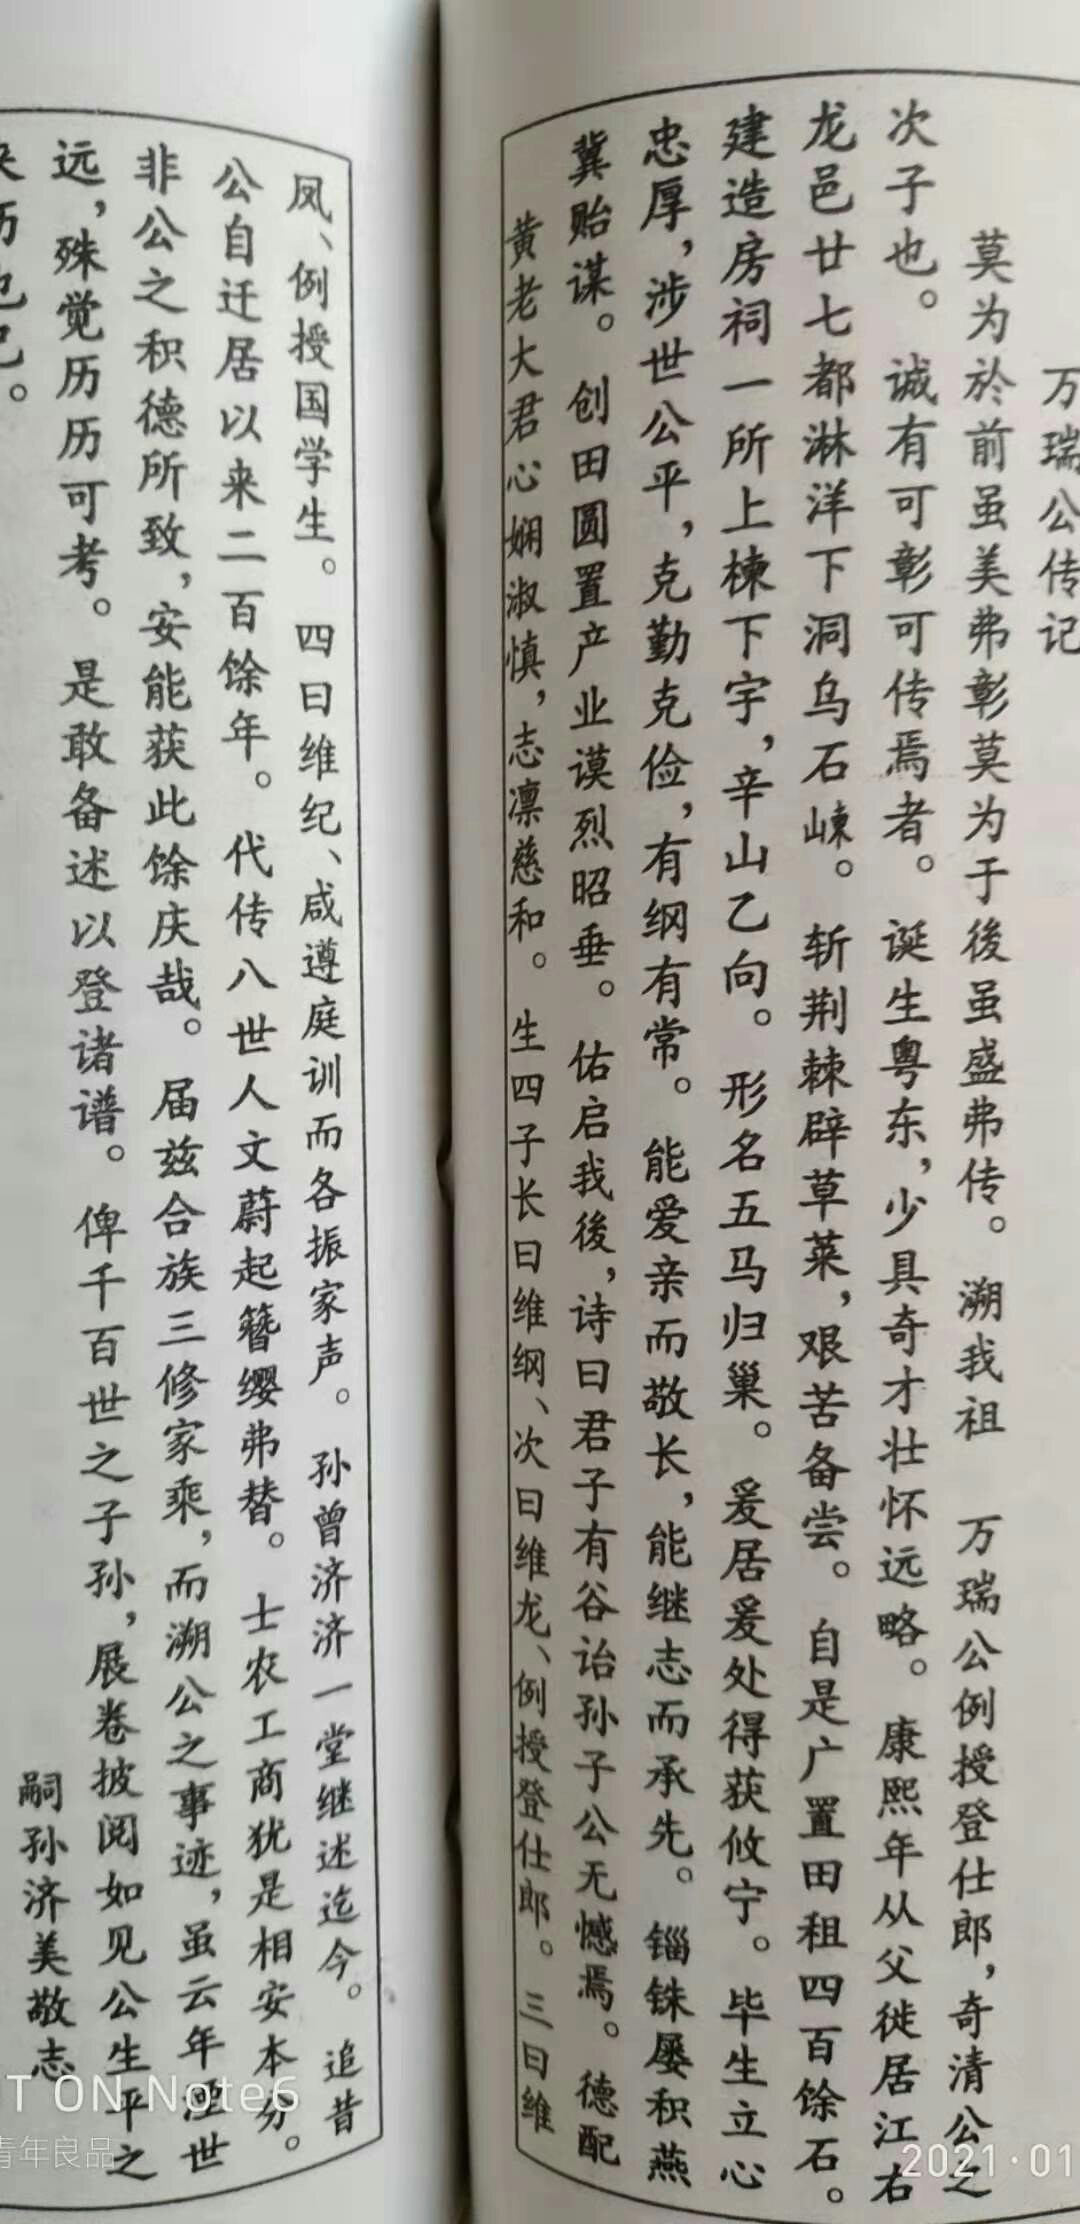 万瑞公传记
莫为於前虽美弗彰莫为于後虽盛弗传。溯我祖 万瑞公例授登仕郎，奇清公之
次子也。诚有可彰可传焉者。诞生粤东，少具奇才壮怀远略。康熙年从父徙居江右
龙邑廿七都淋洋下洞乌石崠。斩荆棘辟草莱，艰苦备尝。自是广置田租四百馀石。
建造房祠一所上栋下宇，辛山乙向。形名五马归巢。爰居爰处得获攸宁。毕生立心
忠厚，涉世公平，克勤克俭，有纲有常。能爱亲而敬长，能继志而承先。锱铢屡积燕
冀贻谋。创田圆置产业谟烈昭垂。佑启我後，诗曰君子有谷诒孙子公无憾焉。德配
黄老大君心娴淑慎，志凛慈和。生四子长曰维纲、次曰维龙、例授登仕郎。三曰维
凤、例授国学生。四曰维纪、咸遵庭训而各振家声。孙曾济济一堂继述迄今。追昔
公自迁居以来二百馀年。代传八世人文蔚起簪缨弗替。士农工商犹是相安本分。
非公之积德所致，安能获此馀庆哉。届兹合族三修家乘，而溯公之事迹，虽云年湮世
远，殊觉历历可考。是敢备述以登诸谱。俾千百世之子孙，展卷披阅如见公生平之
来历也已。
嗣孙济美敬志
T ON Note6
青年良品
2021·01